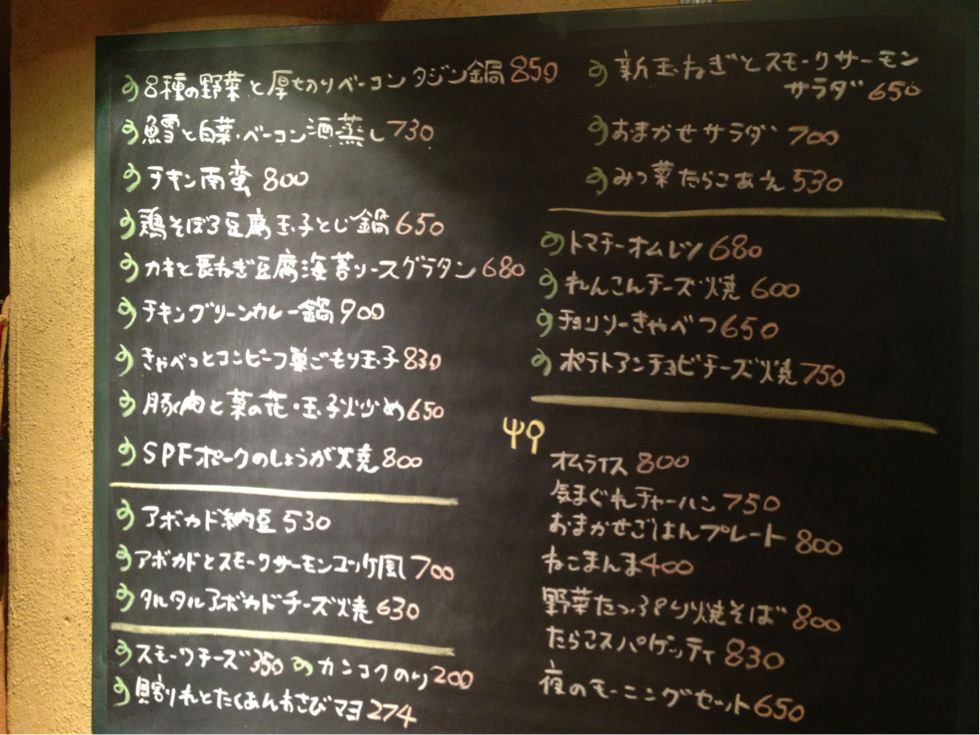 8種の野菜と厚切りベーコン タジン鍋 850
鱈と白菜・ベーコン酒蒸し 730
チキン南蛮 800
鶏そぼろ豆腐玉子とじ鍋 650
カキと長ねぎ豆腐海苔ソースグラタン 680
チキングリーンカレー鍋 900
きゃべつとコンビーフ巣ごもり玉子 830
豚肉と菜の花・玉子炒め 650
SPFポークのしょうが焼 800
アボカド納豆 530
アボカドとスモークサーモンユッケ風 700
タルタルアボカドチーズ焼 630
スモークチーズ 350 カンコクのり 200
貝割れとたくあんわさびマヨ 274
新玉ねぎとスモークサーモン
サラダ 650
おまかせサラダ 700
みつ菜たらこあえ 530
トマチーオムレツ 680
れんこんチーズ焼 600
チョリソーきゃべつ 650
ポテトアンチョビチーズ焼 750
オムライス 800
気まぐれチャーハン 750
おまかせごはんプレート 800
ねこまんま 400
野菜たっぷり焼そば 800
たらこスパゲッティ 830
夜のモーニングセット 650